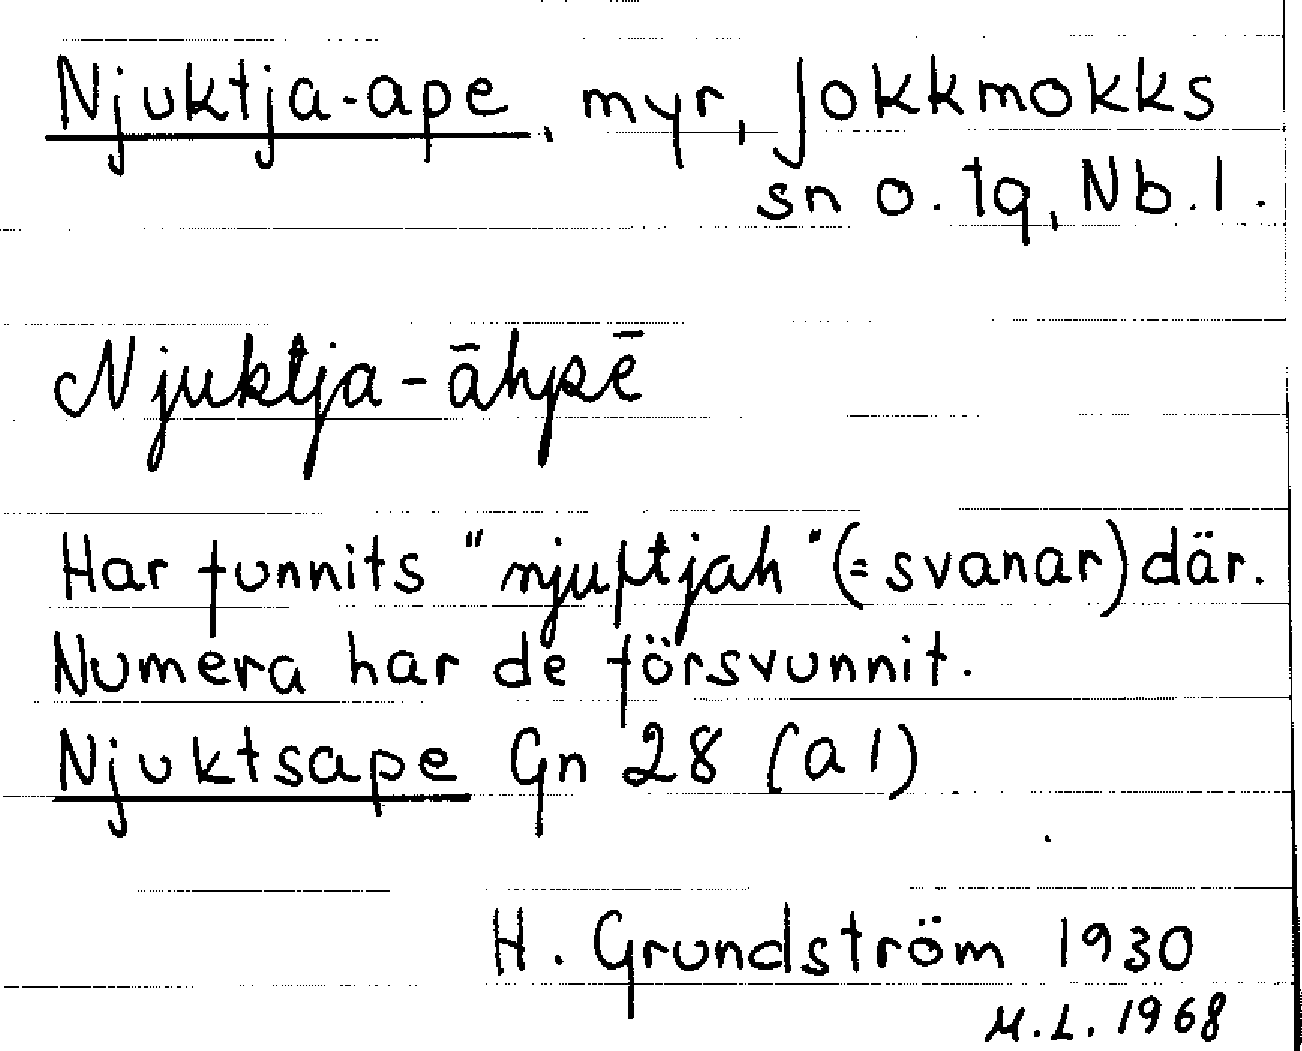 Njuktja-ape, myr, Jokkmokks
sn o. tg, Nb. l.
Njuktja-āhpē
Har funnits "njuktjah" (= svanar) där.
Numera har de försvunnit.
Njuktsape Gn 28 (a 1)
H. Grundström 1930
M.L. 1968